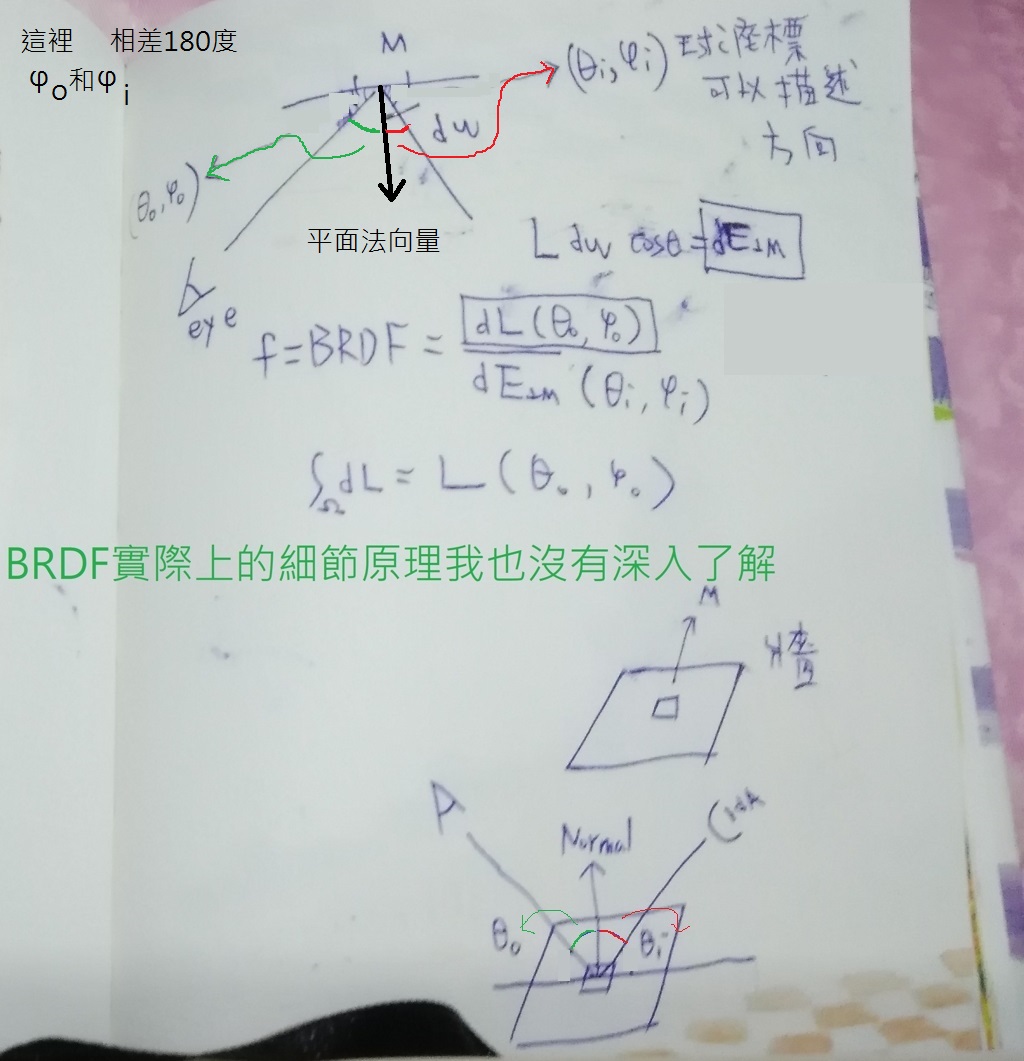 這裡 相差180度
φo和φi
M
(θi,φi) 球座標
可以描述
方向
dw
(θo,φo)
平面法向量
L dw cosθ = dE⊥M
eye
f=BRDF = dL(θo,φo)
dE⊥M (θi,φi)
∫Ω dL = L(θo,φo)
BRDF實際上的細節原理我也沒有深入了解
M
Normal
θo
θi